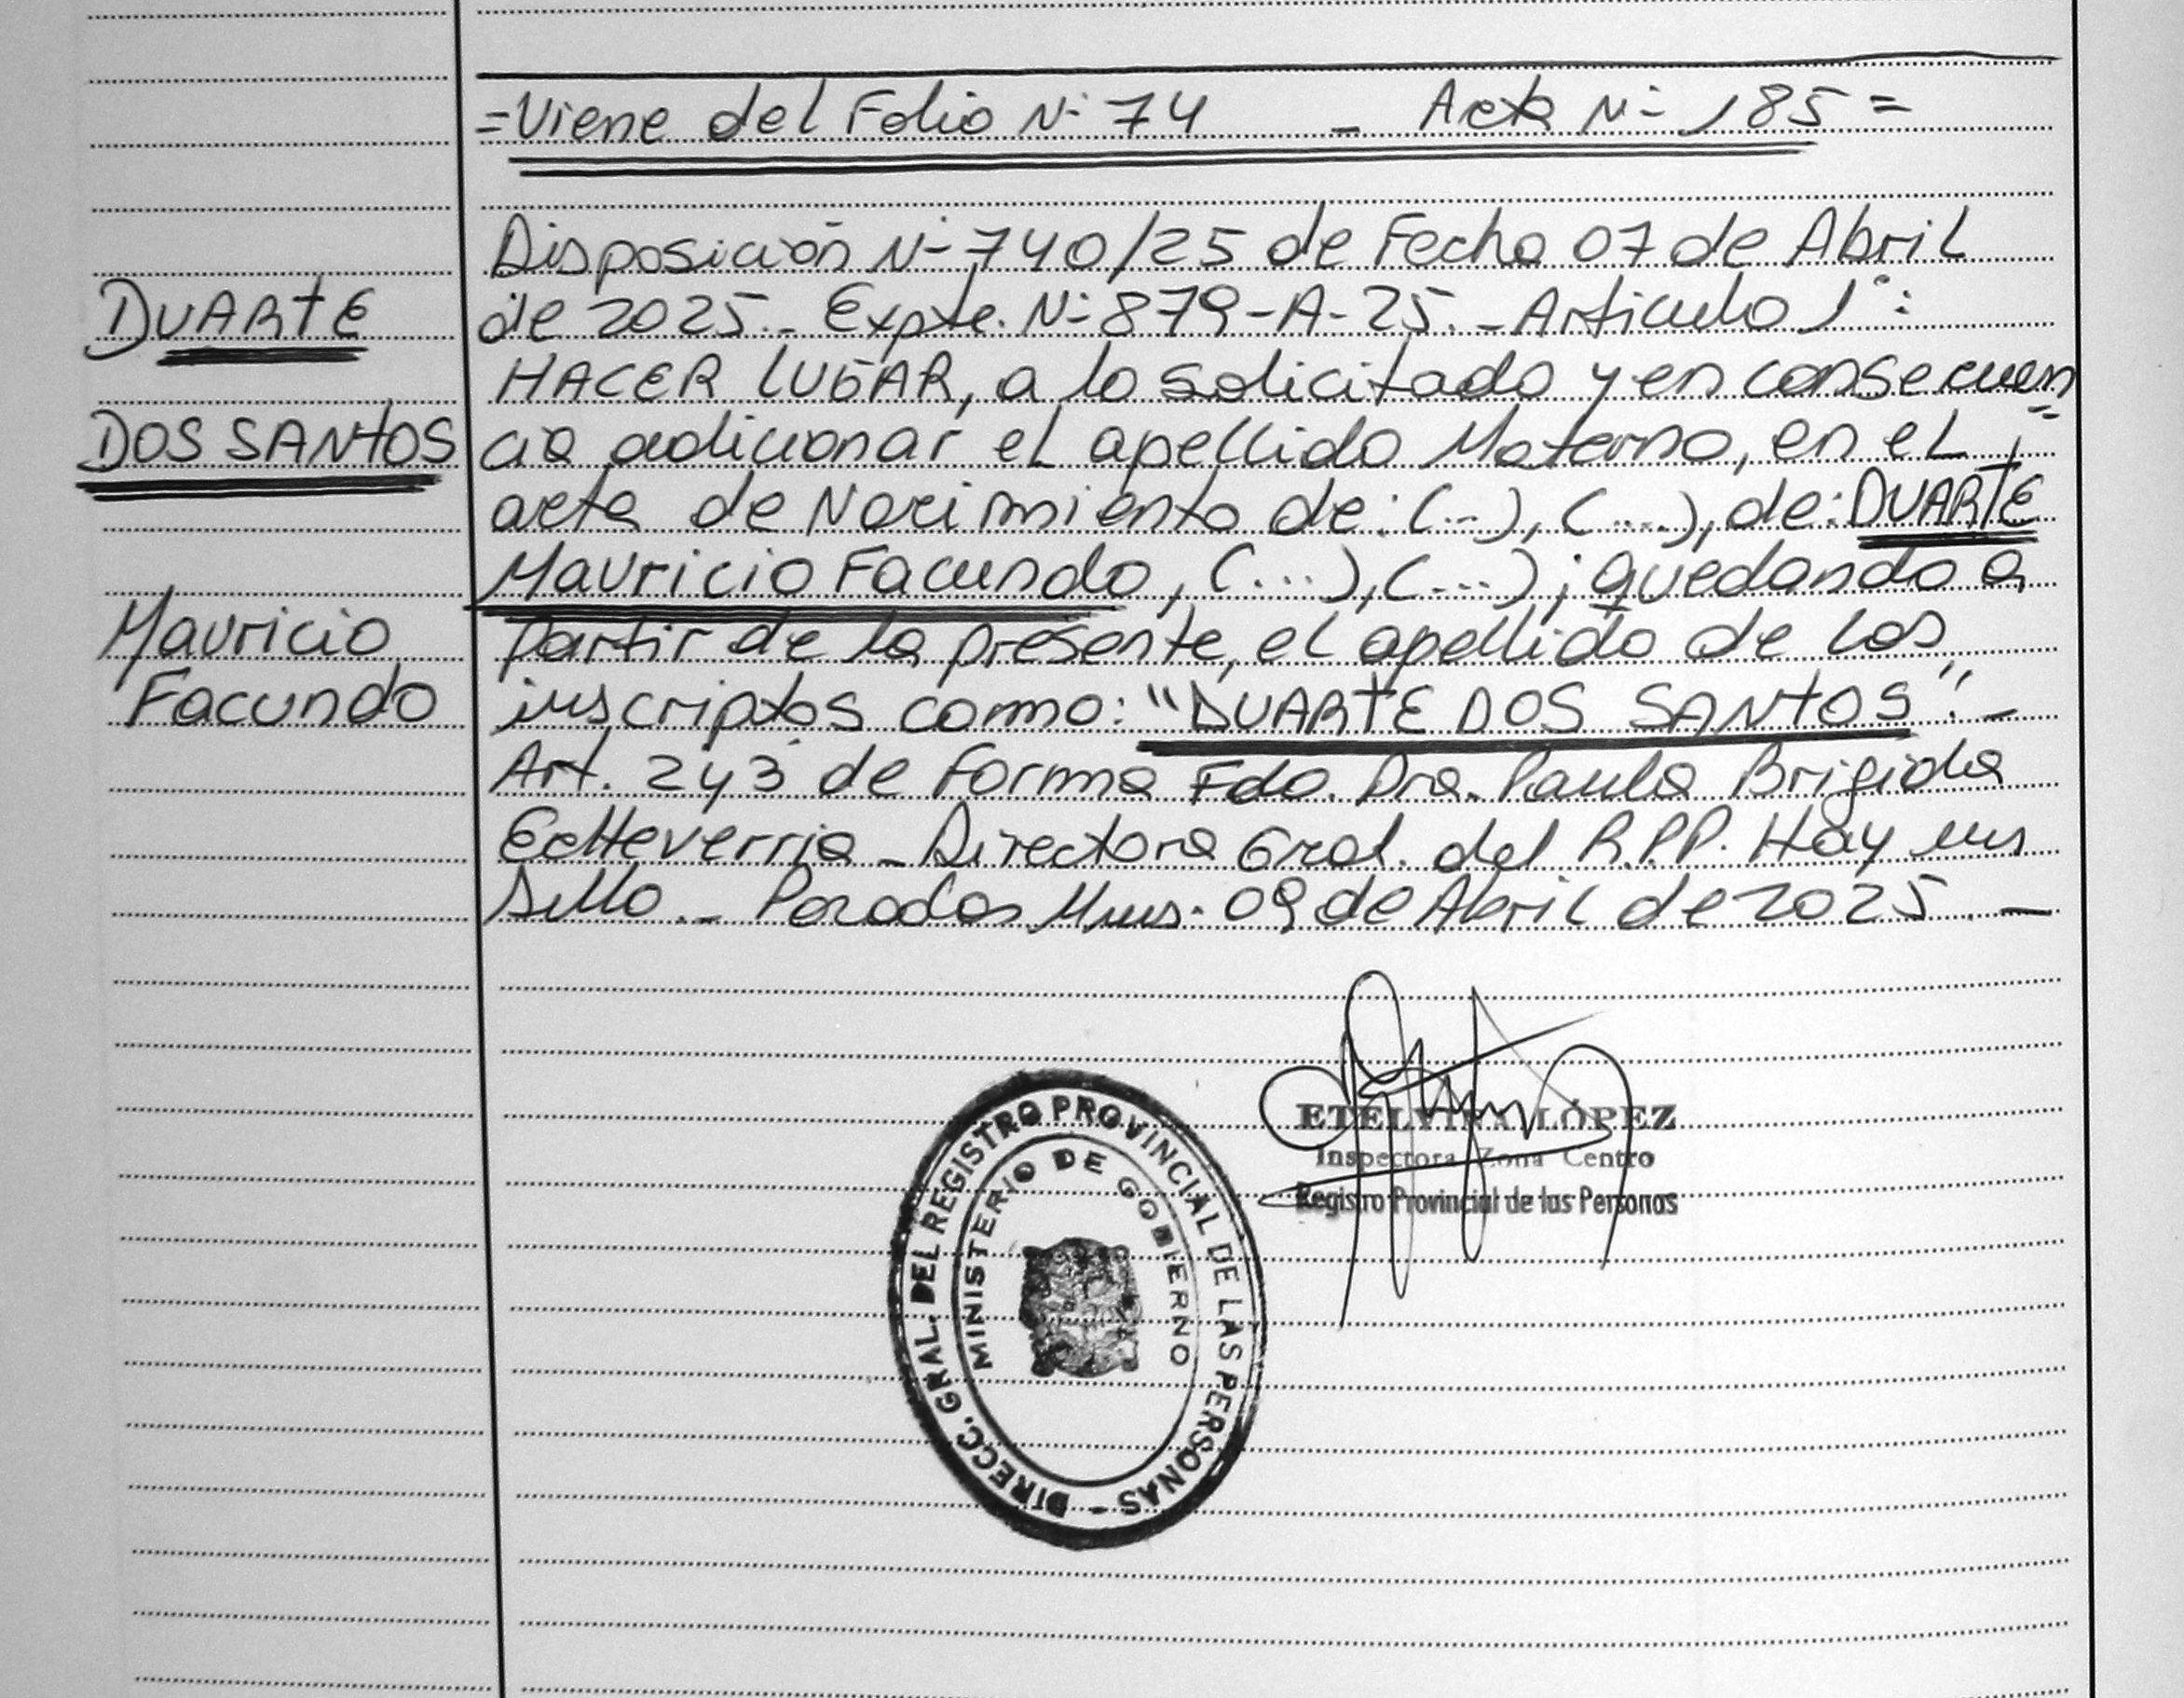 =Viene del Folio N- 74 - Acta N- 185=
Disposición N- 740/25 de Fecha 07 de Abril
de 2025.- Expte. N- 879-A-25.- Articulo 1°:
HACER LUGAR, a lo solicitado y en consecuen
cia adicionar el apellido Materno, en el
acta de Nacimiento de: (...), (....), de: DUARTE
Mauricio Facundo, (....), (....); quedando a
Partir de la presente, el apellido de los
inscriptos como: "DUARTE DOS SANTOS".-
Art. 2 y 3 de Forma Fdo. Dra. Paula Brigida
Echeverria - Directora Gral. del R.P.P. Hay un
Sello.- Posadas Mnes. 09 de Abril de 2025.-
DUARTE
DOS SANTOS
Mauricio
Facundo
ETELVINA LÓPEZ
Inspectora Zona Centro
Registro Provincial de las Personas
DIRECC. GRAL. DEL REGISTRO PROVINCIAL DE LAS PERSONAS -
MINISTERIO DE GOBIERNO